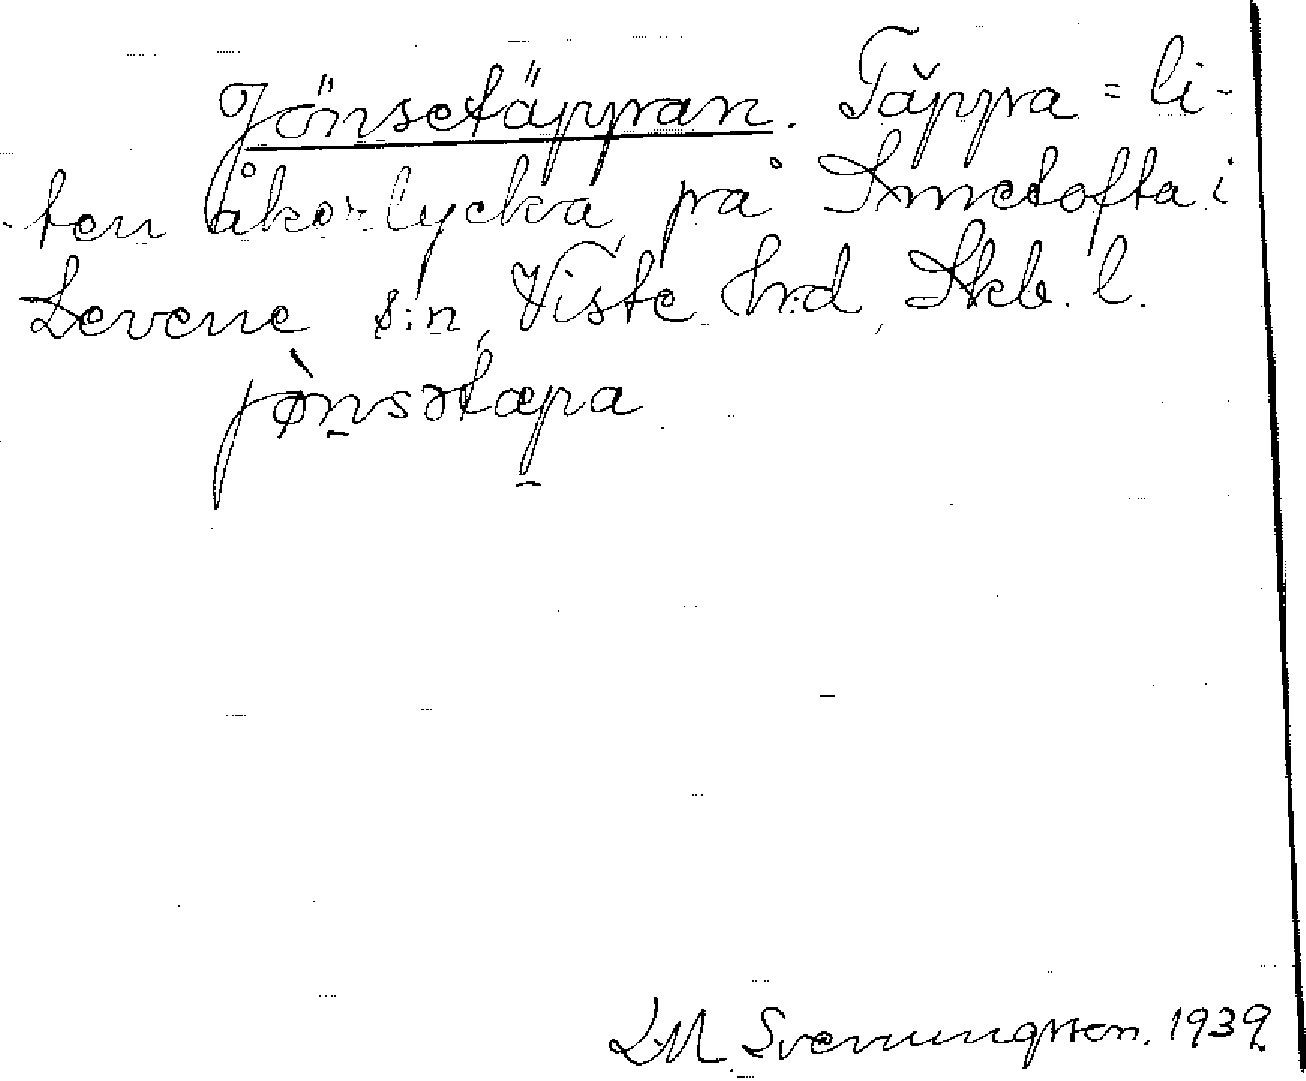 Jönsetäppan. Täppa = li-
ten åkerlycka på Smetofta i
Levene s:n, Viste hrd, Skb. l.
jø̀nsətæpa
L.M. Svenungsson. 1939.